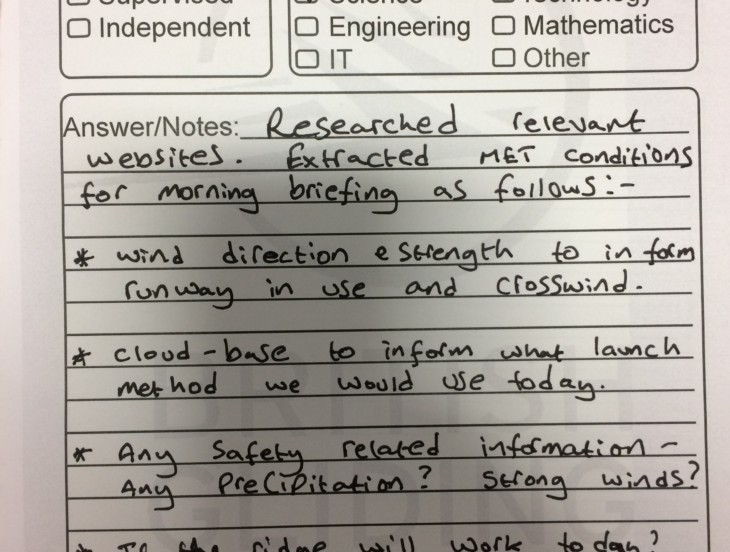 Supervised Science Technology
☐ Independent ☐ Engineering ☐ Mathematics
☐ IT ☐ Other
Answer/Notes: Researched relevant
websites. Extracted MET conditions
for morning briefing as follows:-
* wind direction & strength to inform
runway in use and crosswind.
* cloud-base to inform what launch
method we would use today.
* Any Safety related information -
Any Precipitation? Strong winds?
* Is the ridge will work today?
BRITISH
GLIDING